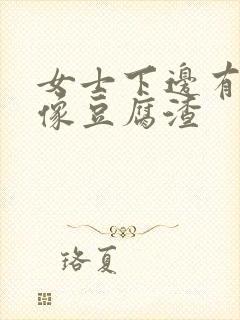 女士下邊有
像豆腐渣
珞夏